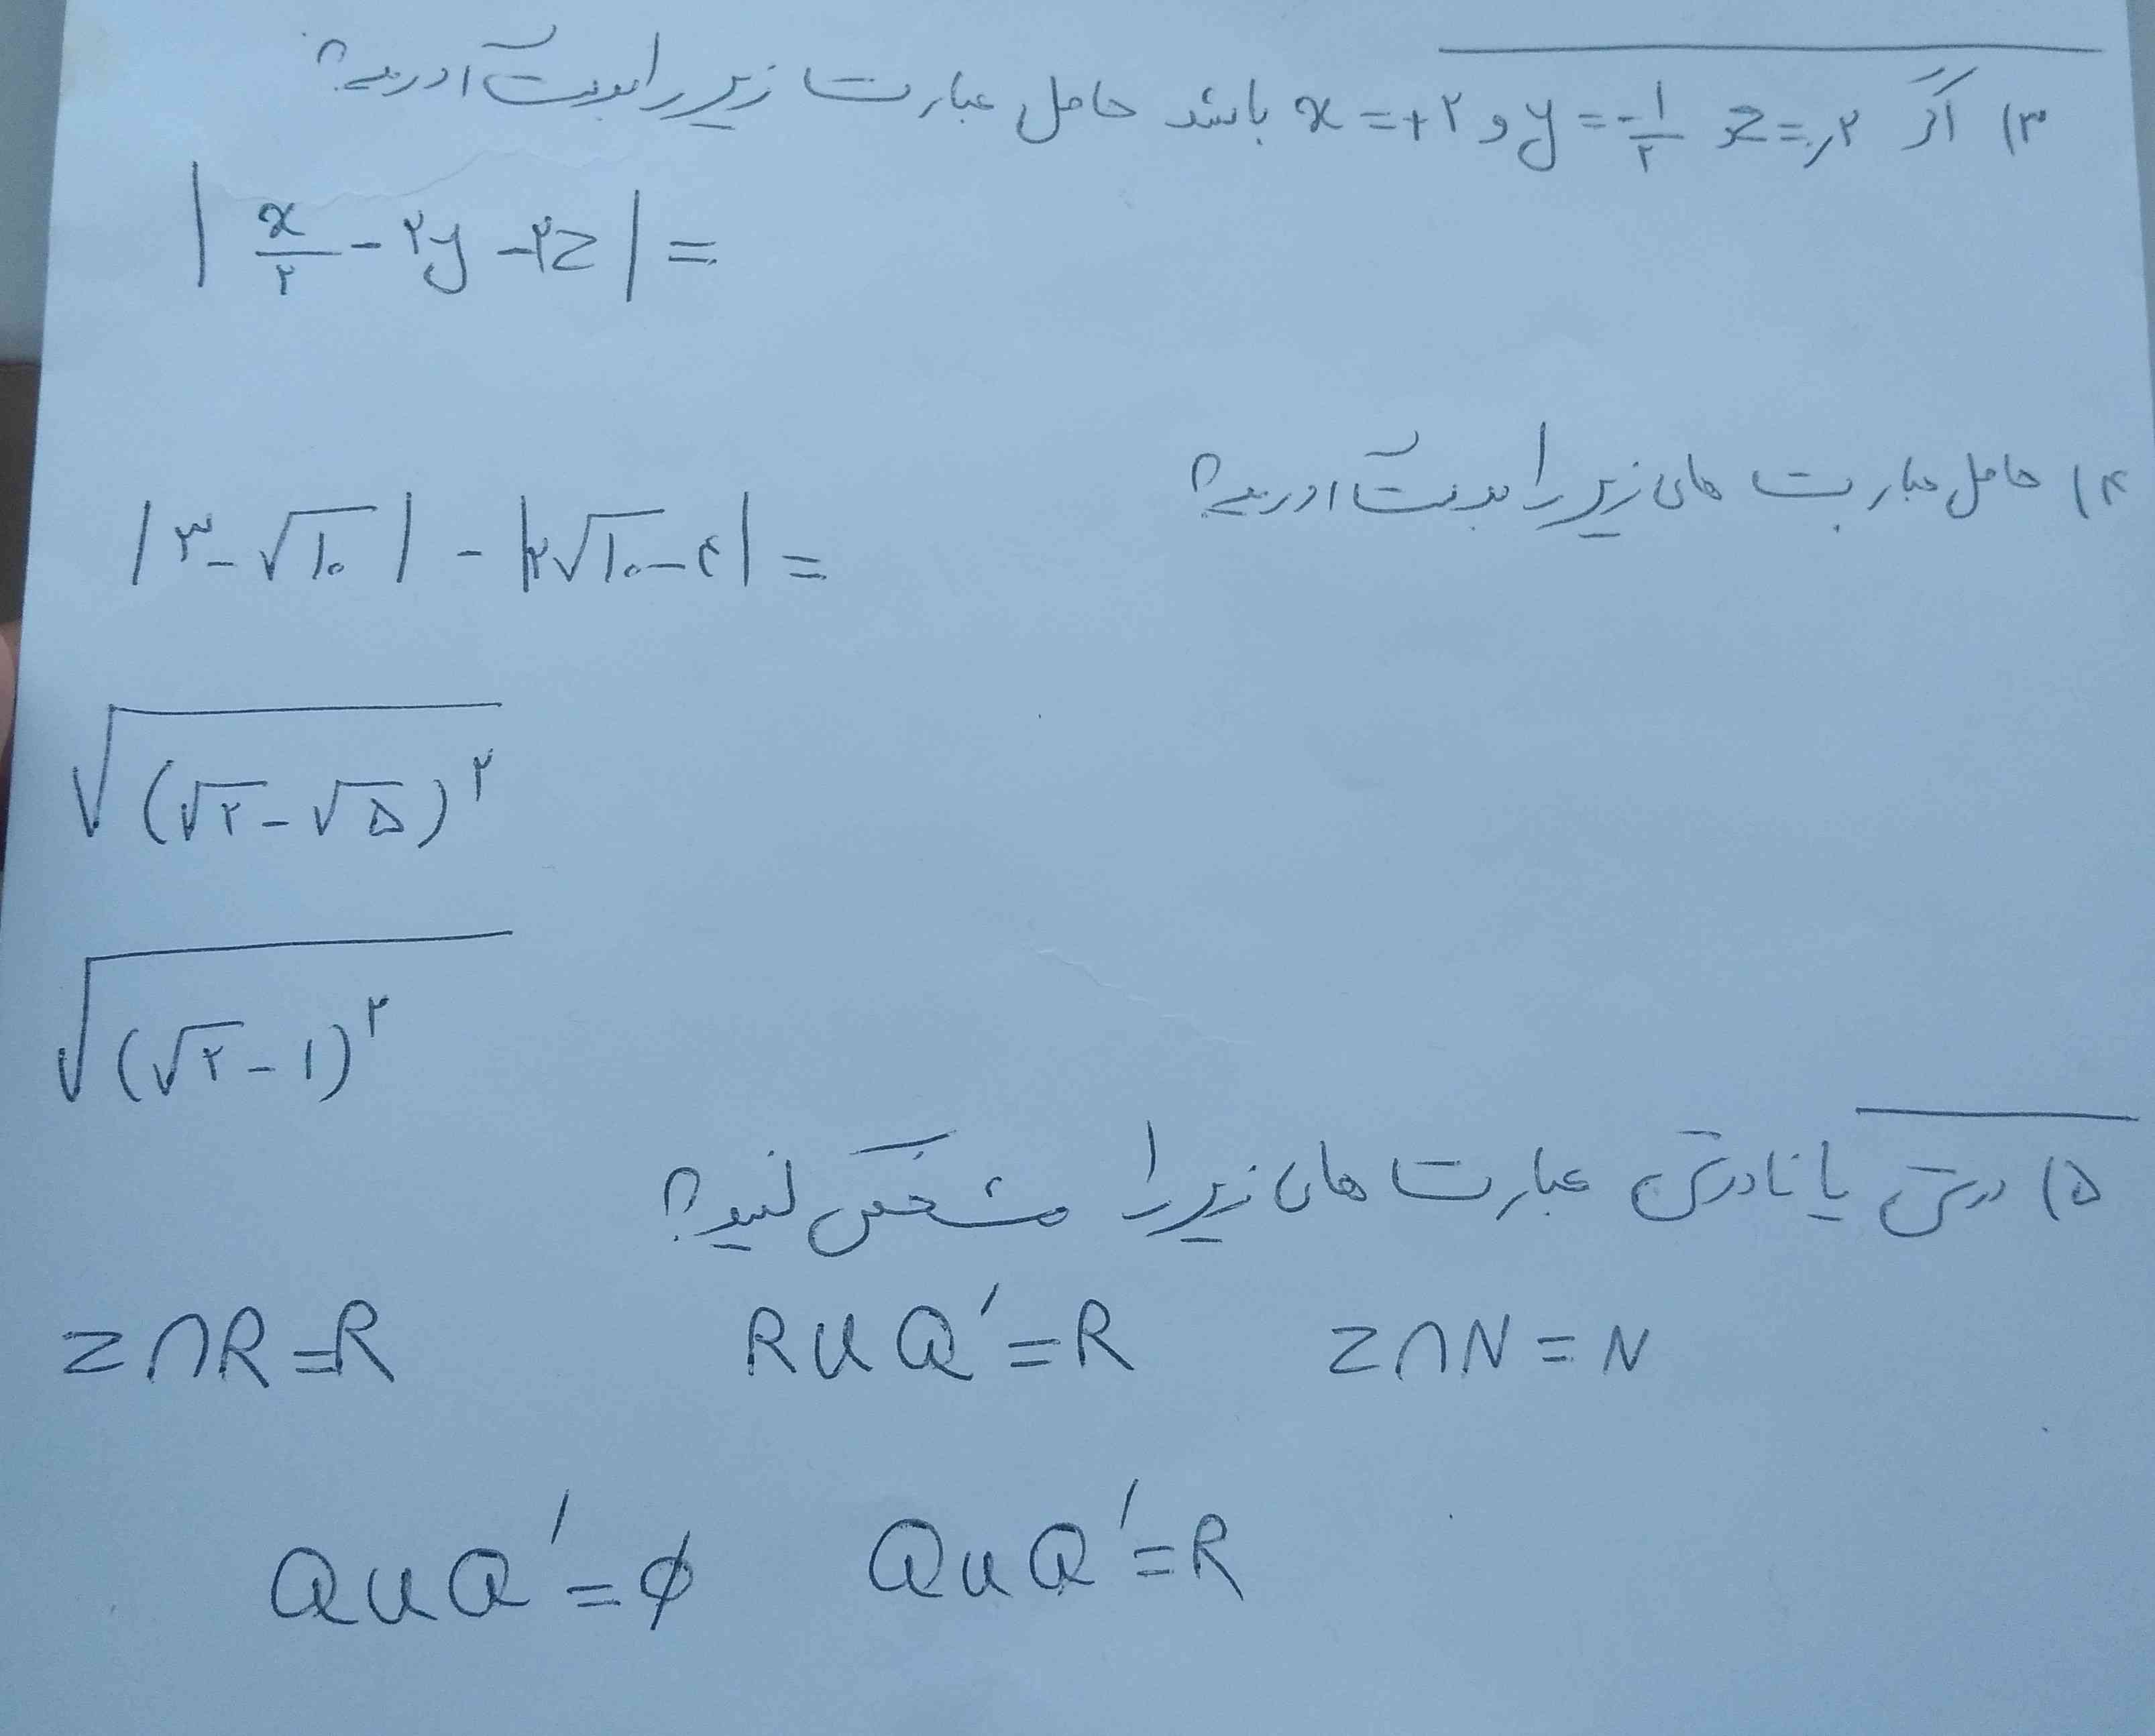 ۳) اگر z=۰٫۲ و y=-۱/۲ و x=+۲ باشد حاصل عبارت زیر را بدست آورید؟
|x/۲ - ۲y - ۲z| =
۴) حاصل عبارت های زیر را بدست آورید؟
|۳-√۱۰| - |۲√۱۰-۴| =
√(√۲-√۵)^۲
√(√۲-۱)^۲
۵) درستی یا نادرستی عبارت های زیر را مشخص کنید؟
Z∩R=R R∪Q'=R Z∩N=N
Q∪Q'=∅ Q∪Q'=R